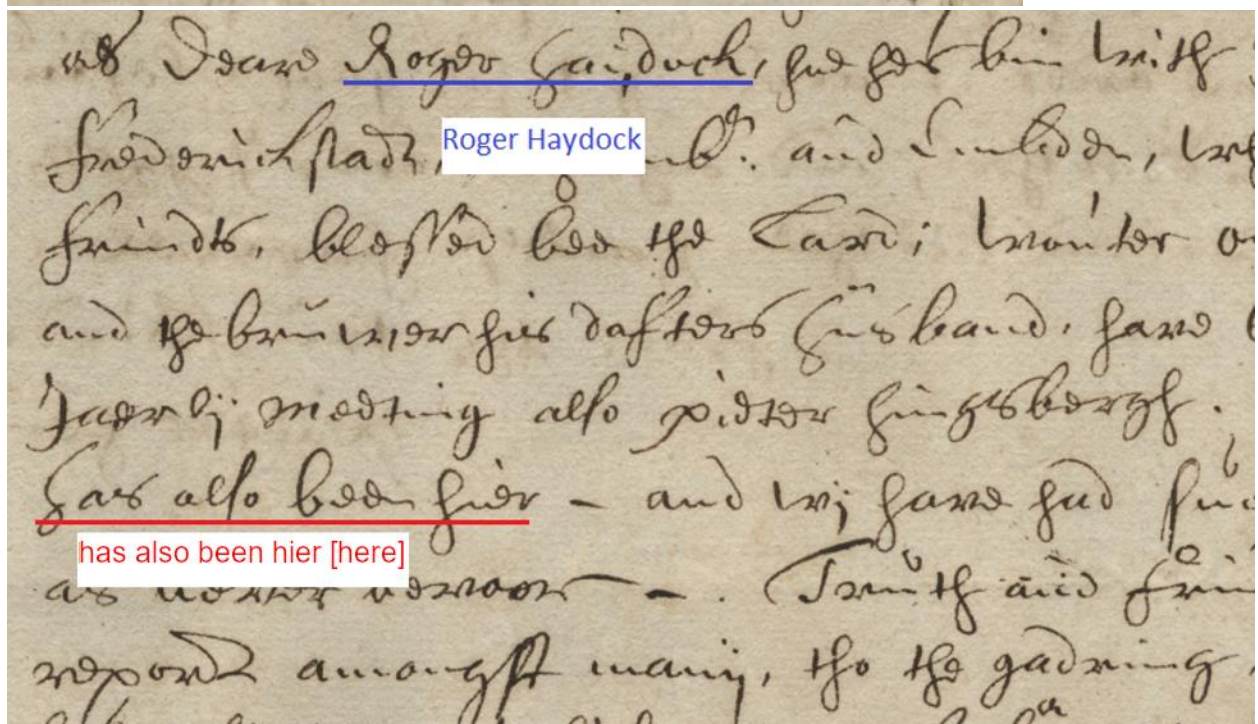 as Deare Roger Haijdock, hee hes bin with
Roger Haydock
Frederickstadt, and Embden,
frindts, blessed bee the Lard; wouter
and the bruwer his dafters Husband, have
Jaerlij meeting also pieter hingsbergh.
Has also been hier – and wij have had
has also been hier [here]
as never vervoor – . Truth and
report amongst manij, tho the gadring